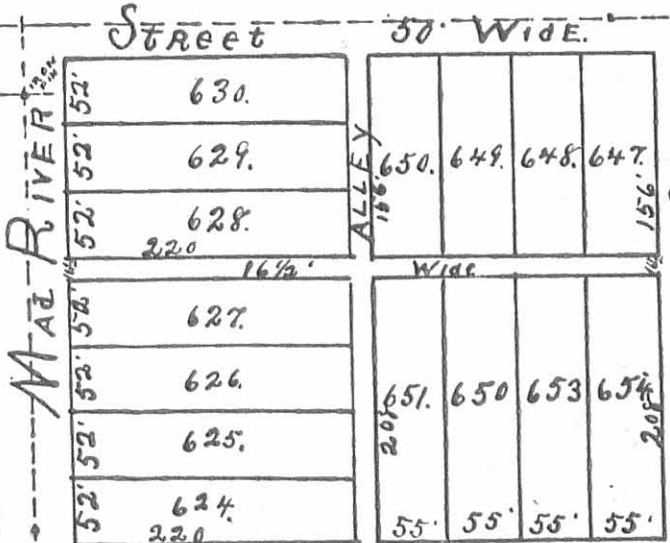 Street 50' WIDE.
MAD RIVER
52' 630.
52' 629.
52' 628.
220
ALLEY
156'
650. 649. 648. 647.
156'
16½' Wide
52' 627.
52' 626.
52' 625.
52' 624.
220
651. 650 653 654
208 208
55' 55' 55' 55'